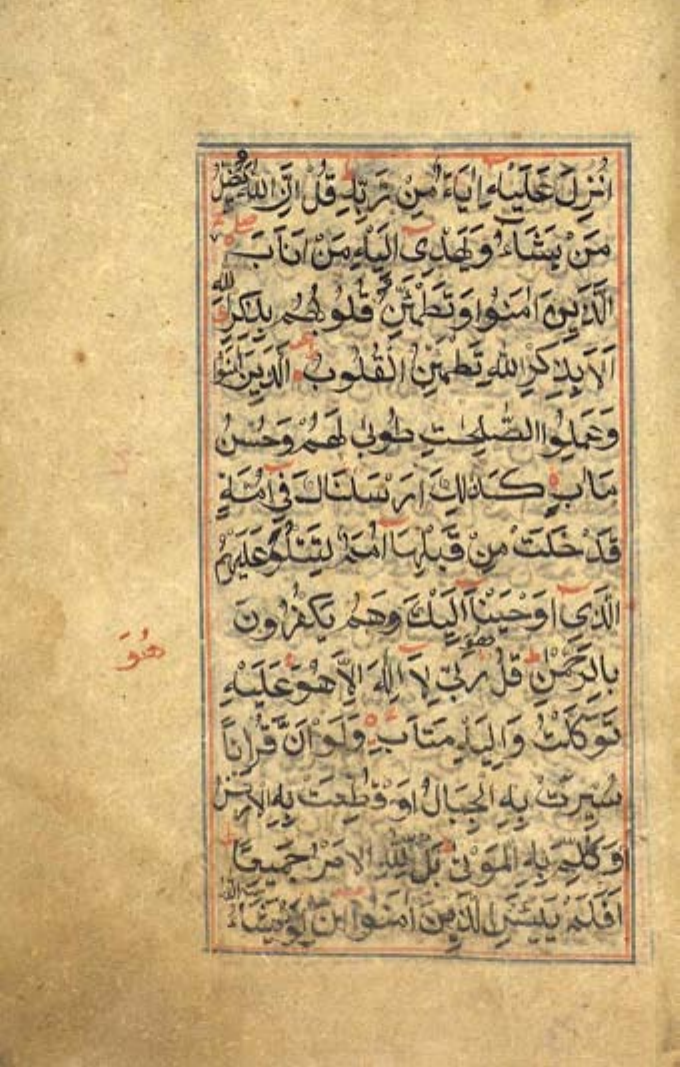 اُنْزِلَ عَلَيْهِ اٰيَةٌ مِنْ رَبِّهٖ قُلْ اِنَّ اللّٰهَ يُضِلُّ
مَنْ يَشَاءُ وَيَهْدِىٓ اِلَيْهِ مَنْ اَنَابَ
اَلَّذِينَ اٰمَنُوا وَتَطْمَئِنُّ قُلُوبُهُمْ بِذِكْرِ اللّٰهِ
اَلَا بِذِكْرِ اللّٰهِ تَطْمَئِنُّ الْقُلُوبُ اَلَّذِينَ اٰمَنُوا
وَعَمِلُوا الصّٰلِحٰتِ طُوبٰى لَهُمْ وَحُسْنُ
مَاٰبٍ كَذٰلِكَ اَرْسَلْنَاكَ فِىٓ اُمَّةٍ
قَدْ خَلَتْ مِنْ قَبْلِهَآ اُمَمٌ لِتَتْلُوَ عَلَيْهِمُ
الَّذِىٓ اَوْحَيْنَآ اِلَيْكَ وَهُمْ يَكْفُرُونَ
بِالرَّحْمٰنِ قُلْ هُوَ رَبِّى لَآ اِلٰهَ اِلَّا هُوَ عَلَيْهِ
تَوَكَّلْتُ وَاِلَيْهِ مَتَابِ وَلَوْ اَنَّ قُرْاٰنًا
سُيِّرَتْ بِهِ الْجِبَالُ اَوْ قُطِّعَتْ بِهِ الْاَرْضُ
اَوْ كُلِّمَ بِهِ الْمَوْتٰى بَلْ لِلّٰهِ الْاَمْرُ جَمِيعًا
اَفَلَمْ يَايْـَٔسِ الَّذِينَ اٰمَنُوٓا اَنْ لَوْ يَشَآءُ اللّٰهُ
هُوَ